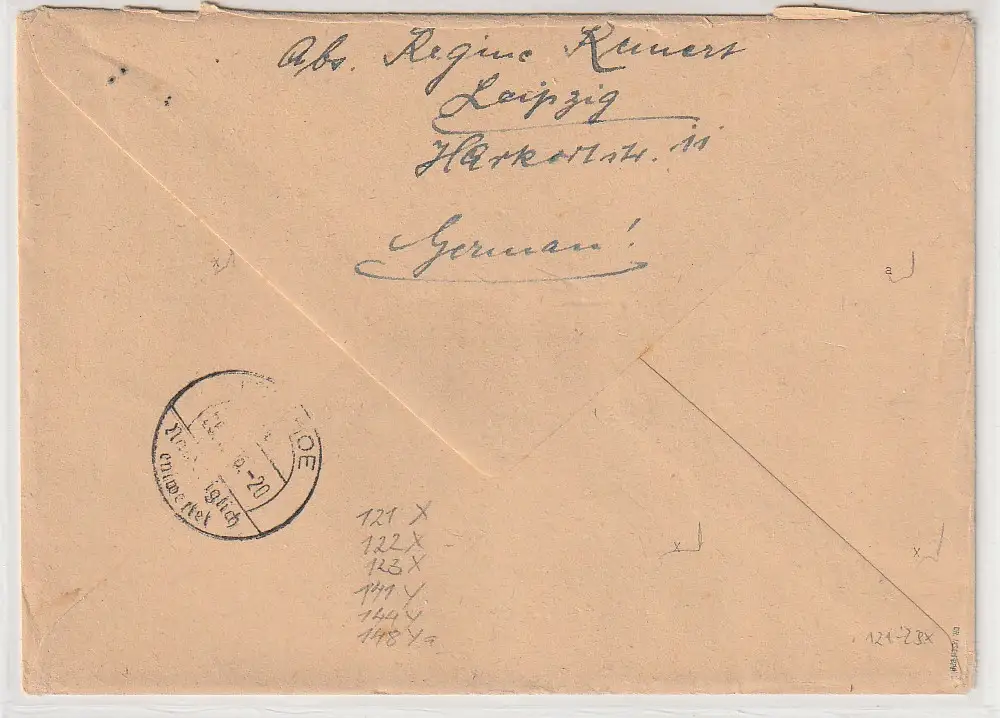 Abs. Regine Kunert
Leipzig
Harkortstr. 11
German!
x
a
OE
-20
entwertet
121 X
122 X
123 X
141 y
144 y
148 Ya
x
x
121-23x